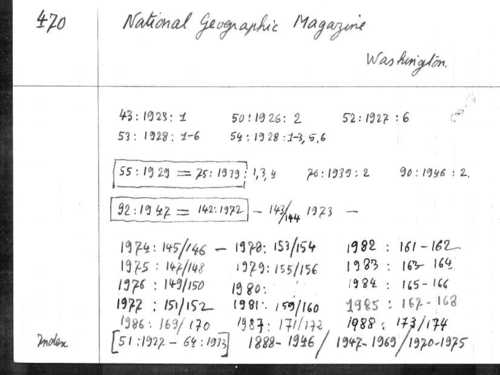 470 National Geographic Magazine
Washington.
43:1923:1 50:1926:2 52:1927:6
53:1928:1-6 54:1928:1-3,5,6
55:1929 = 75:1939:1,3,4 76:1939:2 90:1946:2.
92:1947 = 142:1972 - 143/144 1973 -
1974:145/146 - 1978:153/154 1982:161-162
1975:147/148 1979:155/156 1983:163-164
1976:149/150 1980: 1984:165-166
1977:151/152 1981:159/160 1985:167-168
1986:169/170 1987:171/172 1988:173/174
Index [51:1927-64:1933] 1888-1946/1947-1969/1970-1975